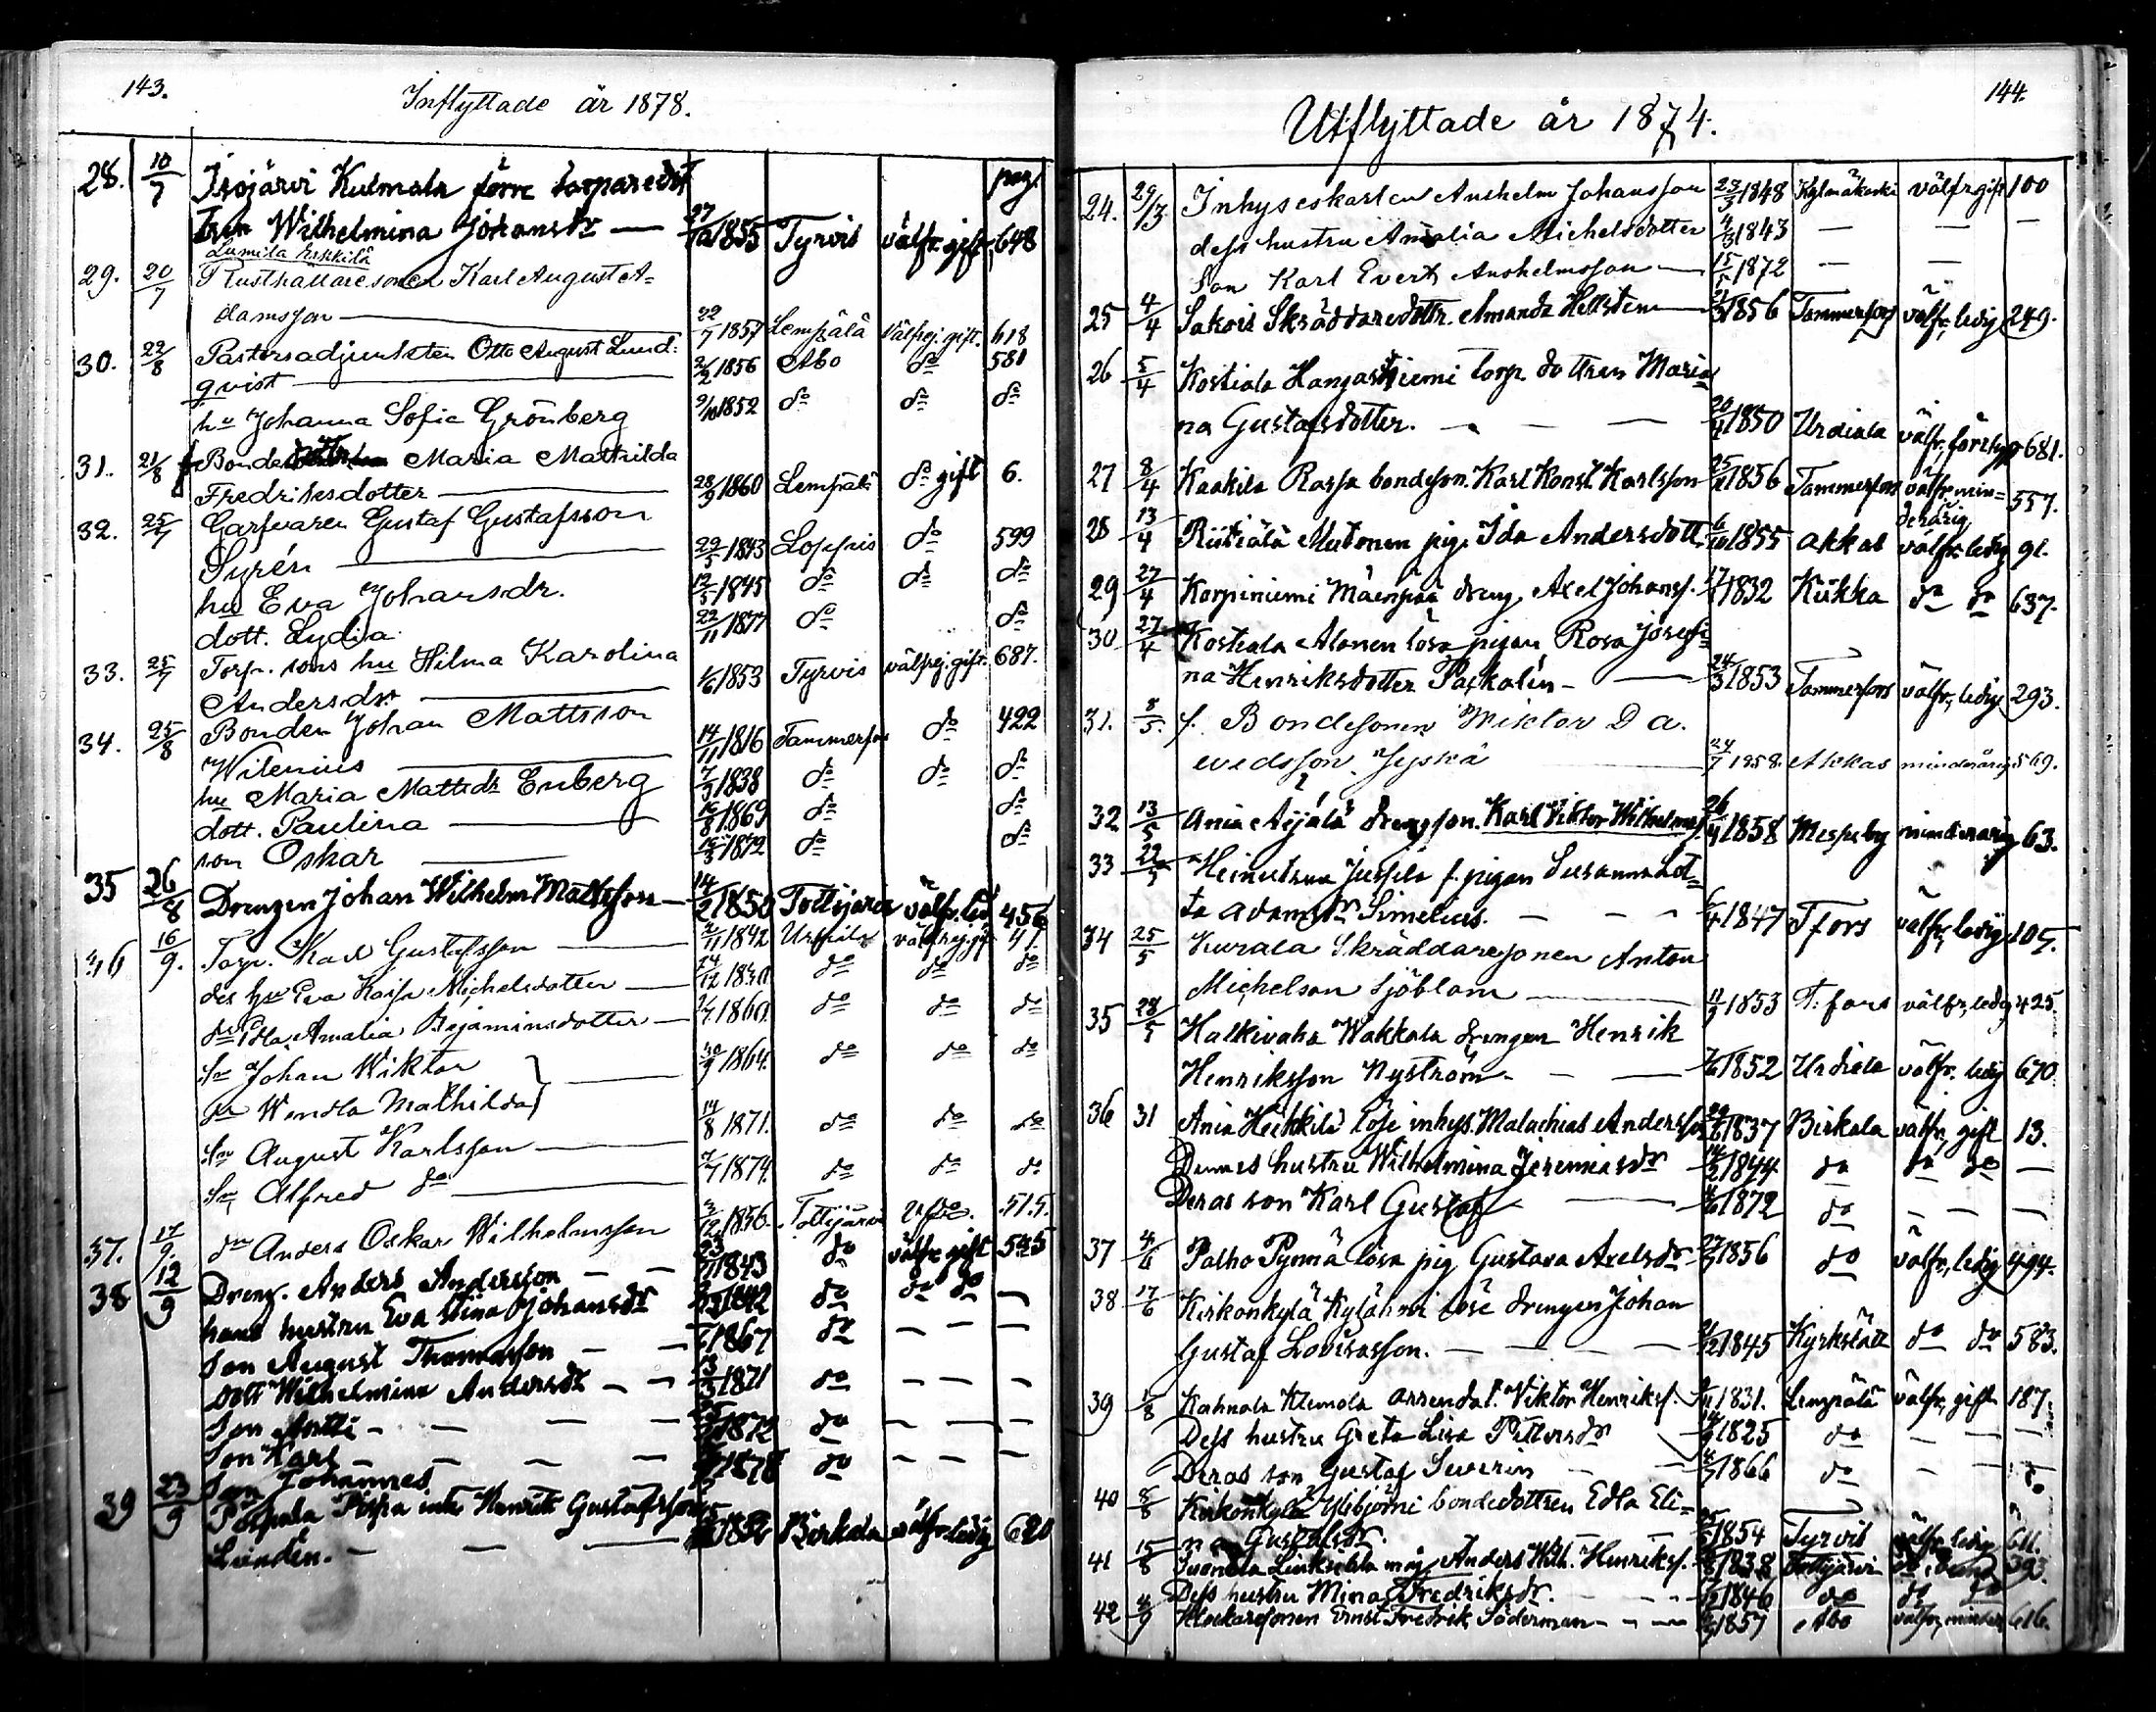 143.
Inflyttade år 1878.
28. 10/7 Isojärvi Kulmala förre torparedr pag.
Wilhelmina Johansdr — 27/10 1855 Tyrvis välfr. gift 648
Lumila Erkkilä
29. 20/7 Rusthållaresonen Karl August A=
damsson — 22/7 1857 Lempälä välfrej. gift. 618
30. 22/8 Pastorsadjunkten Otto August Lund=
qvist — 2/2 1856 Åbo do 581
hu Johanna Sofia Grönberg 9/10 1852 do do do
31. 21/8 f Bonde Maria Mathilda
Fredriksdotter — 28/9 1860 Lempälä do gift 6.
32. 25/7 Garfvaren Gustaf Gustafsson
Syrén — 29/5 1843 Loppis do 599
hu Eva Johansdr. 12/5 1845 do do do
dott. Lydia 22/11 1877 do do
33. 25/7 Torp. sons hu Hilma Karolina
Andersdr. — 1/6 1853 Tyrvis välfrej. gift. 687.
34. 25/8 Bonden Johan Mattsson
Wilenius — 14/11 1816 Tammerfors do 422
hu Maria Mattsdr Enberg 7/3 1838 do do do
dott. Paulina — 16/8 1869 do do
son Oskar — 1872 do do
35 26/8 Drengen Johan Wilhelm Mattsson — 14/2 1850 Tottijärvi välfr. led. 456
36 16/9. Torp. Karl Gustafsson — 2/11 1842 Urdiala välfrej. gft 41.
des hu Eva Kaisa Michelsdotter — 24/12 1830 do do do
dr Edla Amalia Benjaminsdotter — 1860 do do do
Sn Johan Wiktor
dr Wendla Mathilda } — 30/9 1864. do do do
Sn August Karlsson — 14/8 1871. do do do
Sn Alfred do — 7/7 1874. do do do
37. 17/9. dr Anders Oskar Wilhelmsson 3/12 1856. Tottijärvi 515.
38 12/9 Dreng. Anders Andersson — 1843 do välfr. gift 545
hans hustru Eva Stina Johansdr 1842 do do do —
Son August Thomasson — 1867 do — — —
Dott Wilhelmina Andersdr — — 1871 do — — —
Son Antti — — — — 1872 do — — —
Son Karl — — — — 1878 do — — —
Son Johannes
39 23/9 Henrik Gustafsson
Lundén. — — — Birkala välfr. ledig 620
144.
Utflyttade år 1874.
24. 29/3. Inhyseskarlen Anshelm Johansson 23/3 1848 Kylmäkoski välfr gift 100
dess hustru Amalia Michelsdotter 4/3 1843 — — —
Son Karl Evert Anshelmsson — 15/5 1872 — —
25 4/4 Sakois Skräddaredottr. Amanda Hellsten — 1856 Tammerfors välfr, ledig 249.
26 5/4 Kostiala Hangasniemi torp. dottren Maria
na Gustafsdotter. — — 20/4 1850 Urdiala välfr, 681.
27 8/4 Kaakila Rassa bondeson. Karl Konst. Karlsson 25/11 1856 Tammerfors välfr. min=
derårig 557.
28 13/4 Riisiälä Mutonen pig. Ida Andersdott. 6/10 1855 Akkas välfr. ledig 91.
29 27/4 Korpiniemi Mäenpää dreng. Axel Johanss. 1832 Kiikka do do 637.
30 27/4 Kostiala Alanen lösa pigan Rosa Josefi=
na Henriksdotter Paskalin — 24/3 1853 Tammerfors välfr, ledig 293.
31. 8/5. f. Bondesonen Wiktor Da.
vidsson Jyskä — 24/7 1858. Akkas minderårig 569.
32 13/5 Ania Äijälä drengson. Karl Viktor Wilhelmss. 26/4 1858 Messuby minderårig 63.
33 22/5 Heinutsua Jussila f. pigan Susanna Lot=
ta Adamsdr Simelius. — — 6/4 1847 Tfors välfr, ledig 107.
34 25/5 Kurala Skräddaresonen Anton
Michelson Sjöblom — 11/9 1853 T:fors välfr, ledig 425
35 28/5 Halkivaha Wakkala drengen Henrik
Henriksson Nyström. — — 7/6 1852 Urdiala välfr. ledig 670
36 31 Ania Heikkilä löse inhys. Malachias Andersson 1837 Birkala välfr, gift 13.
Dennes hustru Wilhelmina Jeremiasdr — 14/2 1844 do do do —
Deras son Karl Gustaf — 1872 do — — —
37 4/6 Palho Pynnä lösa pig Gustava Axelsdr — 1856 do välfr, ledig 494.
38 17/6 Kirkonkylä Kylähni löse drengen Johan
Gustaf Lovisasson. — — — 21/12 1845 Kyrkslätt do do 583.
39 1/8 Kahnala Klemola arrendat. Viktor Henrikss. 1831. Lempälä välfr, gift 187.
Dess hustru Greta Lisa Pettersdr 1825 do — — —
Deras son Gustaf Severin — 1866 do — —
40 8/8 Kirkonkylä Ylibjörni bondedottren Edla Eli=
na Gustafsdr. 1854 Tyrvis välfr. ledig 611.
41 15/8 Anders Wilh. Henrikss. 1838 Tottijärvi 393.
Dess hustru Mina Fredriksdr. — — 1846 do do do
42 4/9 Klockaresonen Ernst Fredrik Söderman — — 1857 Åbo välfr, minder 616.